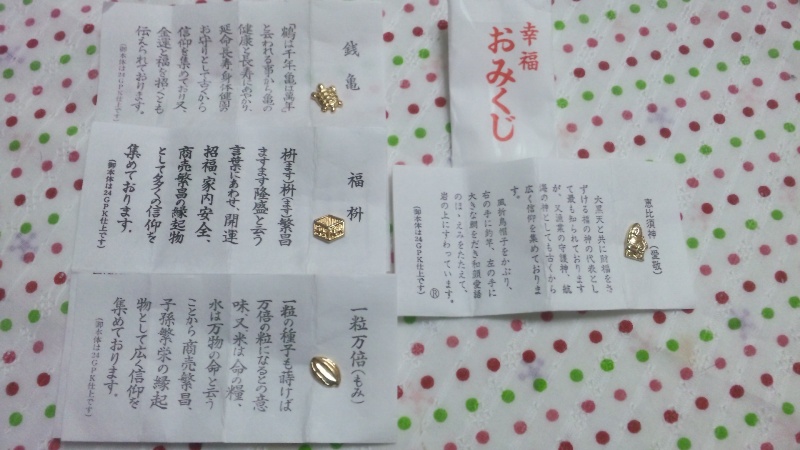 銭亀
「鶴は千年、亀は萬年」
と云われる事から亀の
健康と長寿にあやかり、
延命長寿、身体健固の
お守りとして古くから
信仰を集めており又、
金運と福を招くとも
伝えられております。
(御本体は24GPK仕上です)
福枡
枡ます枡(ます)繁昌
ますます隆盛と云う
言葉にあわせ、開運
招福、家内安全、
商売繁昌の縁起物
として多くの信仰を
集めております。
(御本体は24GPK仕上です)
一粒万倍(もみ)
一粒の種子も蒔けば
万倍の粒になるとの意
味、又米は命の糧、
水は万物の命と云う
ことから商売繁昌、
子孫繁栄の縁起
物として広く信仰を
集めております。
(御本体は24GPK仕上です)
幸福
おみくじ
恵比須神(愛敬)
大黒天と共に財福をさ
ずける福の神の代表とし
て最も知られております
が、又漁業の守護神、航
海の神としても古くから
広く信仰を集めておりま
す。
風折烏帽子をかぶり、
右の手に釣竿、左の手に
大きな鯛をだき和顔愛語
のほゝえみをたたえて、
岩の上にすわっています。
(御本体は24GPK仕上です) Ⓡ